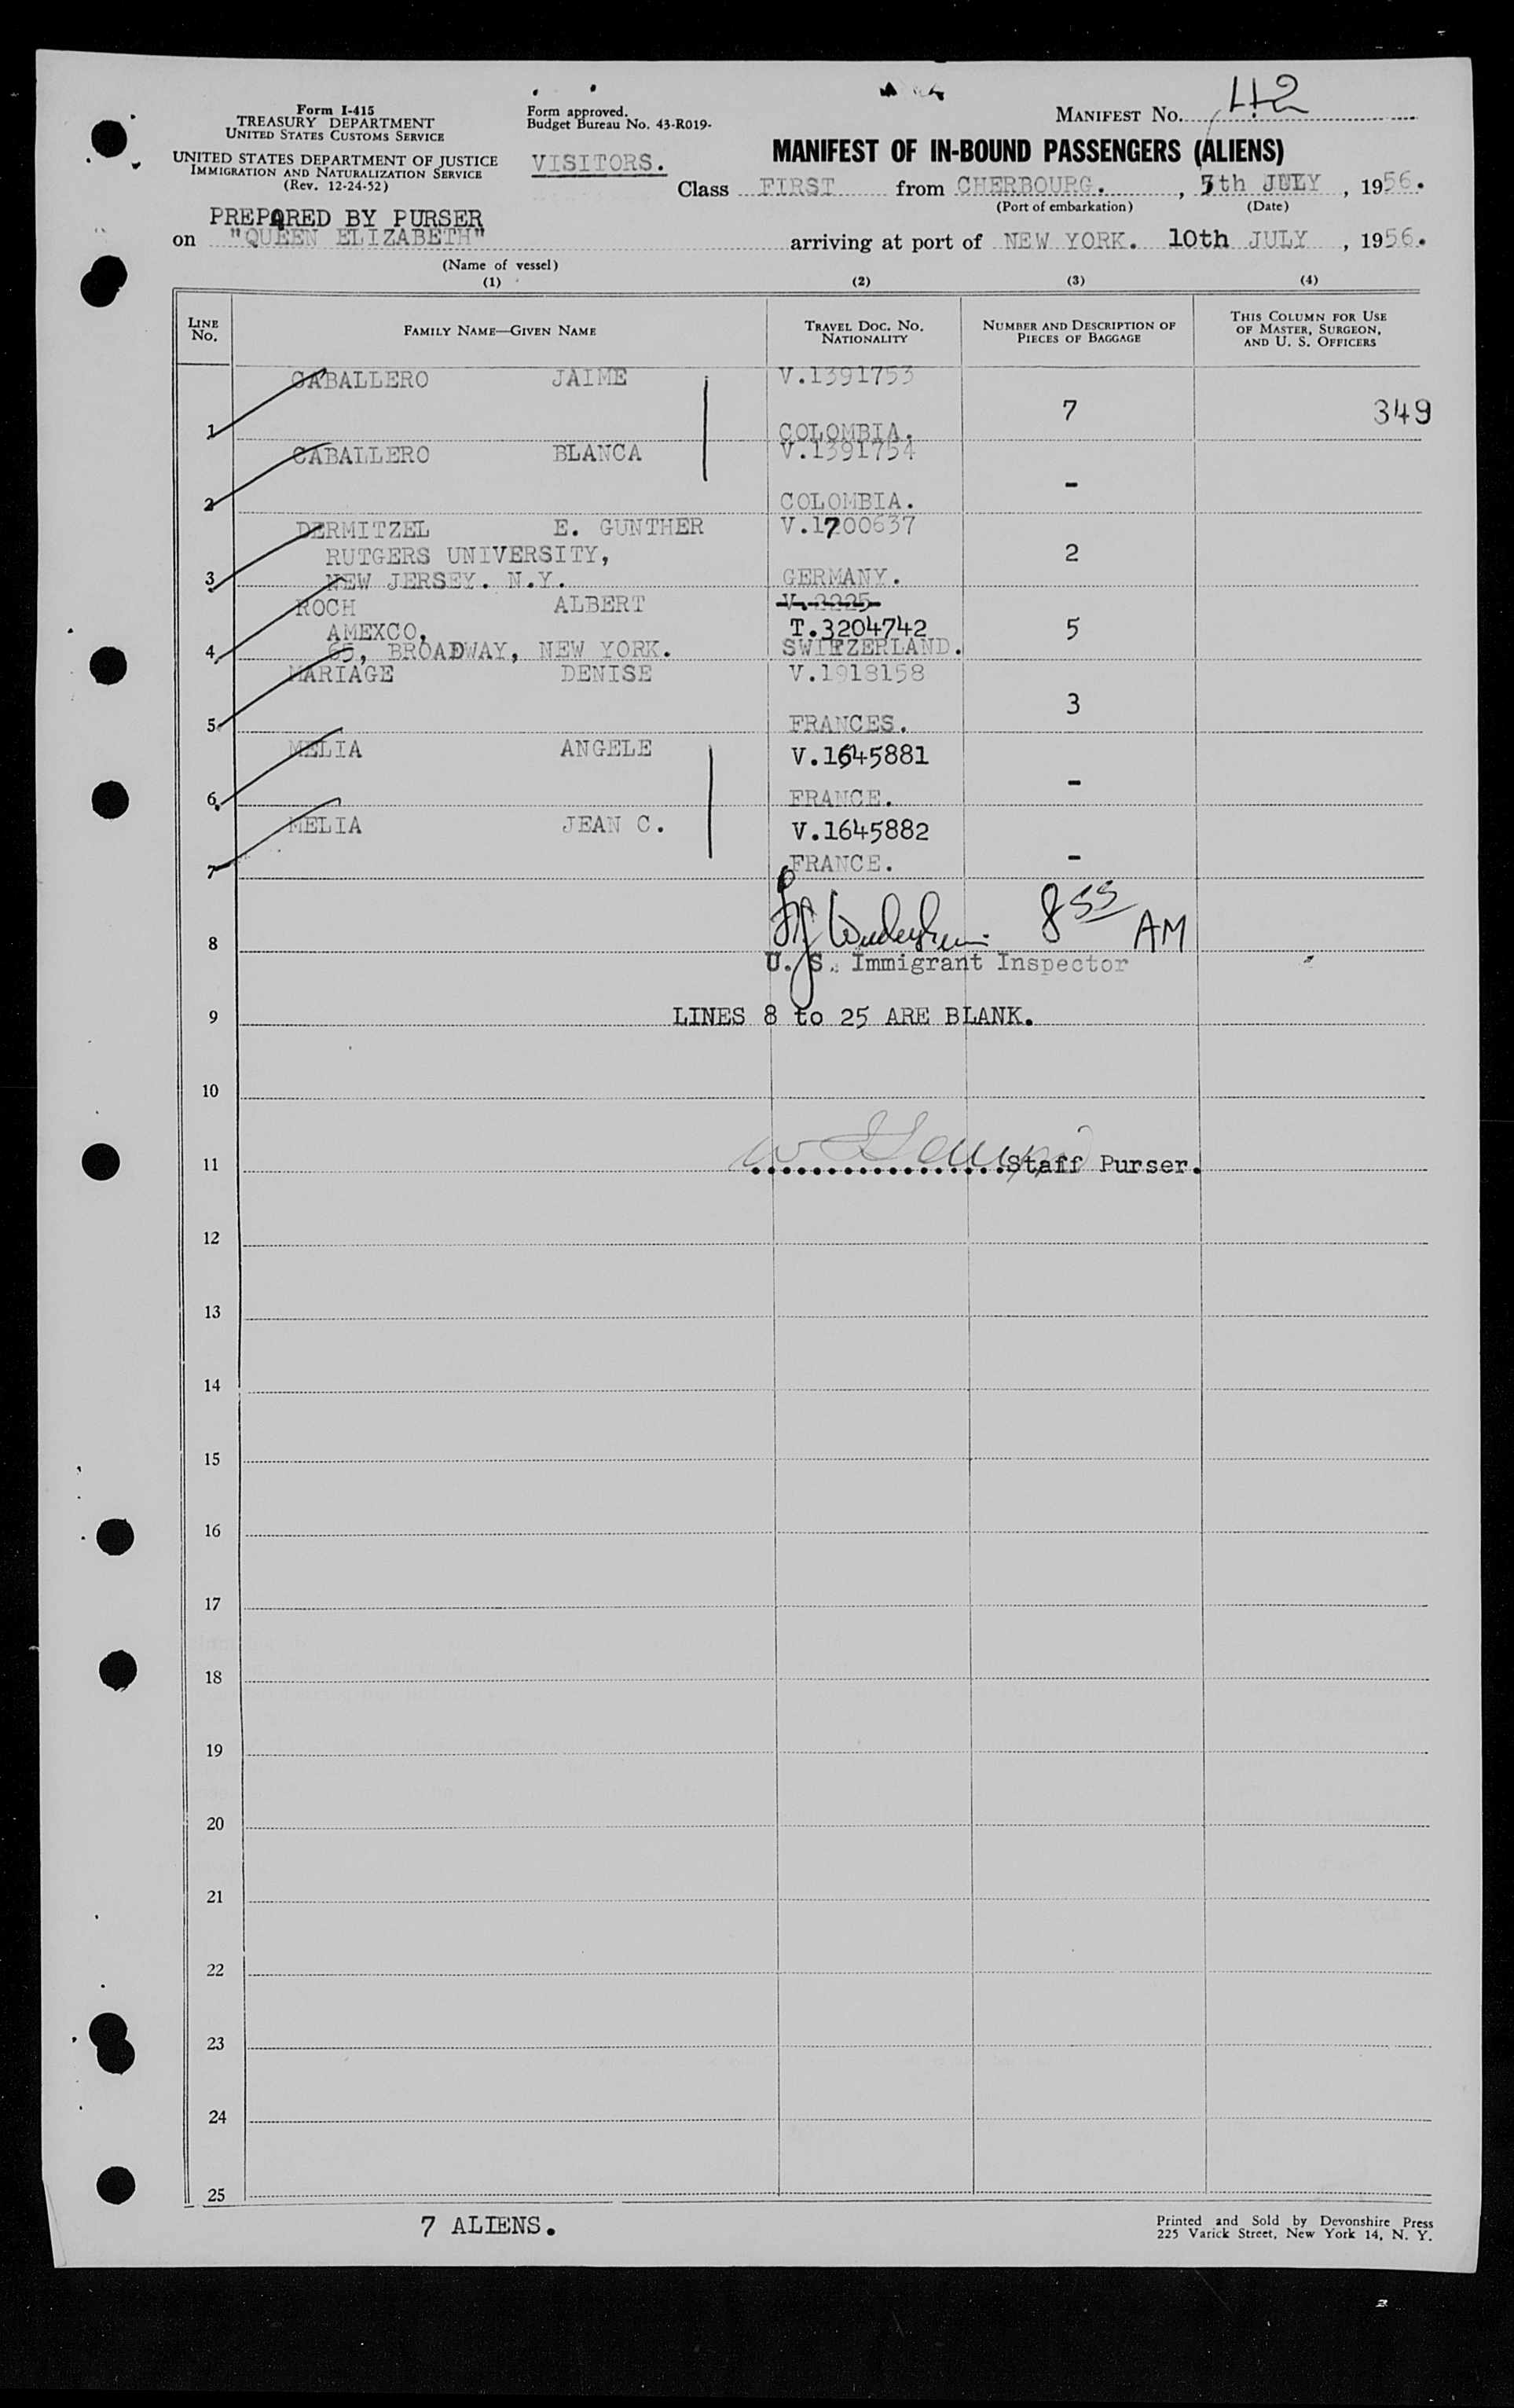 Form I-415
TREASURY DEPARTMENT
UNITED STATES CUSTOMS SERVICE
UNITED STATES DEPARTMENT OF JUSTICE
IMMIGRATION AND NATURALIZATION SERVICE
(Rev. 12-24-52)
Form approved.
Budget Bureau No. 43-R019-
VISITORS.
MANIFEST No. 42
MANIFEST OF IN-BOUND PASSENGERS (ALIENS)
Class FIRST from CHERBOURG. , 5th JULY , 1956.
(Port of embarkation) (Date)
PREPARED BY PURSER
on "QUEEN ELIZABETH" arriving at port of NEW YORK. 10th JULY , 1956.
(Name of vessel)
(1) (2) (3) (4)
LINE No. FAMILY NAME—GIVEN NAME TRAVEL DOC. NO. NATIONALITY NUMBER AND DESCRIPTION OF PIECES OF BAGGAGE THIS COLUMN FOR USE OF MASTER, SURGEON, AND U. S. OFFICERS
CABALLERO JAIME V.1391753
7 349
1 COLOMBIA.
CABALLERO BLANCA V.1391754
-
2 COLOMBIA.
DERMITZEL E. GUNTHER V.1700637
RUTGERS UNIVERSITY, 2
3 NEW JERSEY. N.Y. GERMANY.
ROCH ALBERT V.2225
AMEXCO, T.3204742 5
4 65, BROADWAY, NEW YORK. SWITZERLAND.
MARIAGE DENISE V.1918158
3
5 FRANCES.
MELIA ANGELE V.1645881
-
6 FRANCE.
MELIA JEAN C. V.1645882
7 FRANCE. -
8 8 55 AM
U. S. Immigrant Inspector
9 LINES 8 to 25 ARE BLANK.
10
11 Staff Purser.
12
13
14
15
16
17
18
19
20
21
22
23
24
25
7 ALIENS.
Printed and Sold by Devonshire Press
225 Varick Street, New York 14, N. Y.